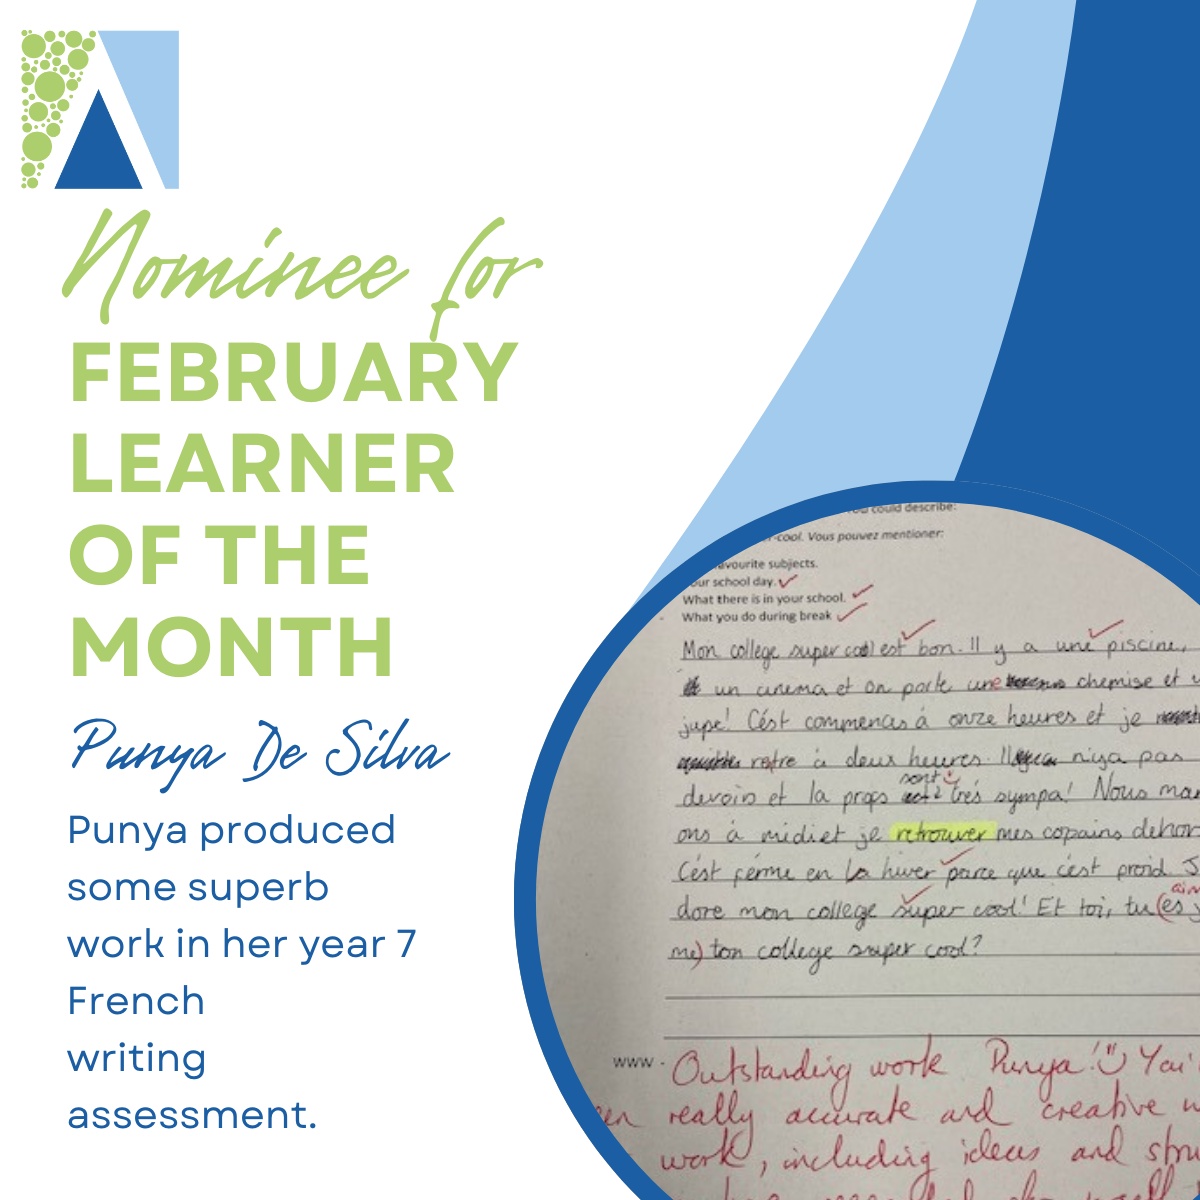 Nominee for
FEBRUARY
LEARNER
OF THE
MONTH
Punya De Silva
Punya produced
some superb
work in her year 7
French
writing
assessment.
ou could describe:
-cool. Vous pouvez mentioner:
avourite subjects.
our school day.
What there is in your school.
What you do during break
Mon college super cool est bon. Il y a une piscine,
un cinema et on porte une chemise et
jupe! Cést commencas á onze heures et je
retre á deux heures. niya pas
devoirs et la props sont trés sympa! Nous man
ons á midi et je retrouver mes copains dehor
Cést férme en la hiver parce que cést froid. J
dore mon college super cool! Et toi, tu (es
me) ton college super cool?
www - Outstanding work Punya!
en really accurate and creative
work, including ideas and stru